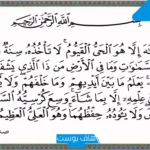 بِسْمِ اللَّهِ الرَّحْمَٰنِ الرَّحِيمِ
إِلَّا هُوَ الْحَيُّ الْقَيُّومُ لَا تَأْخُذُهُ سِنَةٌ
السَّمَاوَاتِ وَمَا فِي الْأَرْضِ مَن ذَا الَّذِي
يَعْلَمُ مَا بَيْنَ أَيْدِيهِمْ وَمَا خَلْفَهُمْ وَلَا
عِلْمِهِ إِلَّا بِمَا شَاءَ وَسِعَ كُرْسِيُّهُ
وَلَا يَئُودُهُ حِفْظُهُمَا وَهُوَ الْعَلِيُّ
هاف بوست